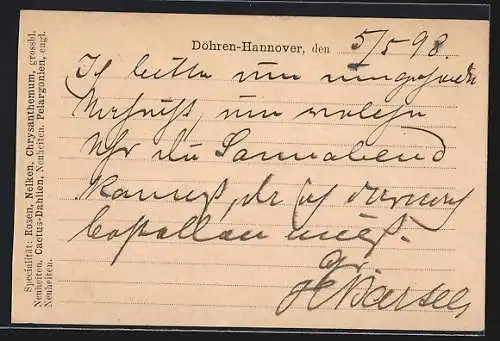 Döhren-Hannover, den 5/5 98
Ich bitte um umgehende
Nachricht, um welche
Uhr du Sonnabend
kommst, da ich darnach
bestellen muß.
Gr.
Specialität: Rosen, Nelken, Chrysanthemum, grossbl.
Neuheiten, Cactus-Dahlien, Neuheiten. Pelargonien, engl.
Neuheiten.